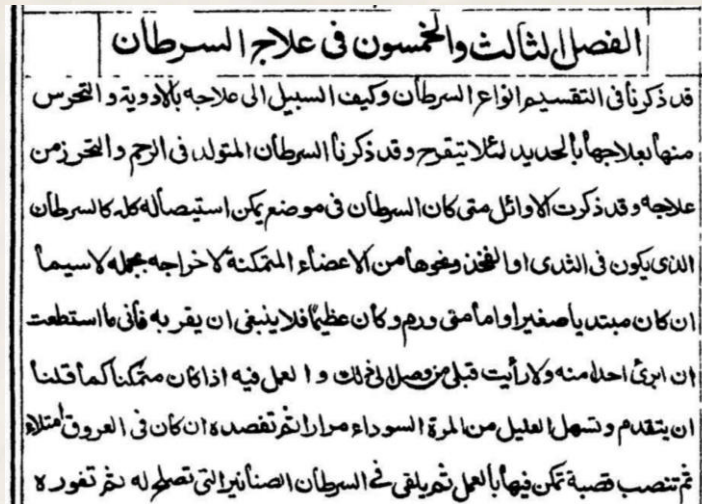 الفصل الثالث والخمسون فى علاج السرطان
قد ذكرنا فى التقسيم انواع السرطان وكيف السبيل الى علاجه بالادوية والتحرس
منها بعلاجها بالحديد لئلا يتقرح وقد ذكرنا السرطان المتولد فى الرحم والتحرز من
علاجه وقد ذكرت الاوائل متى كان السرطان فى موضع يمكن استيصاله كله كالسرطان
الذى يكون فى الثدى او الفخذ ونحوها من الاعضاء المتمكنة لاخراجه بجمله لاسيما
ان كان مبتديا صغيرا واما متى ورم وكان عظيما فلا ينبغى ان يقربه فانى ما استطعت
ان ابرئ احدا منه ولا رأيت قبلى من وصل الى ذلك و العمل فيه اذا كان متمكنا كما قلنا
ان يتقدم وتسهل العليل من المرة السوداء مرارا ثم تفصده ان كان فى العروق امتلاء
ثم تنصب نصبة تمكن فيها بالعمل ثم يلقى فى السرطان الصنانير التى تصلح له ثم تقوره